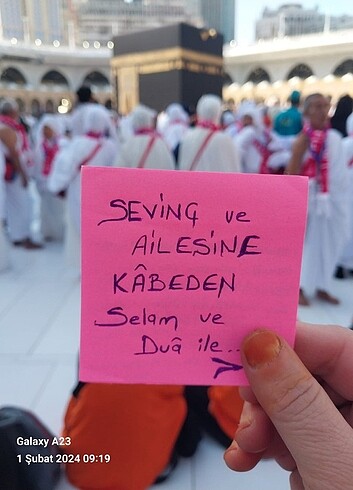 SEVİNÇ ve
AİLESİNE
KÂBEDEN
Selam ve
Duâ ile..
Galaxy A23
1 Şubat 2024 09:19